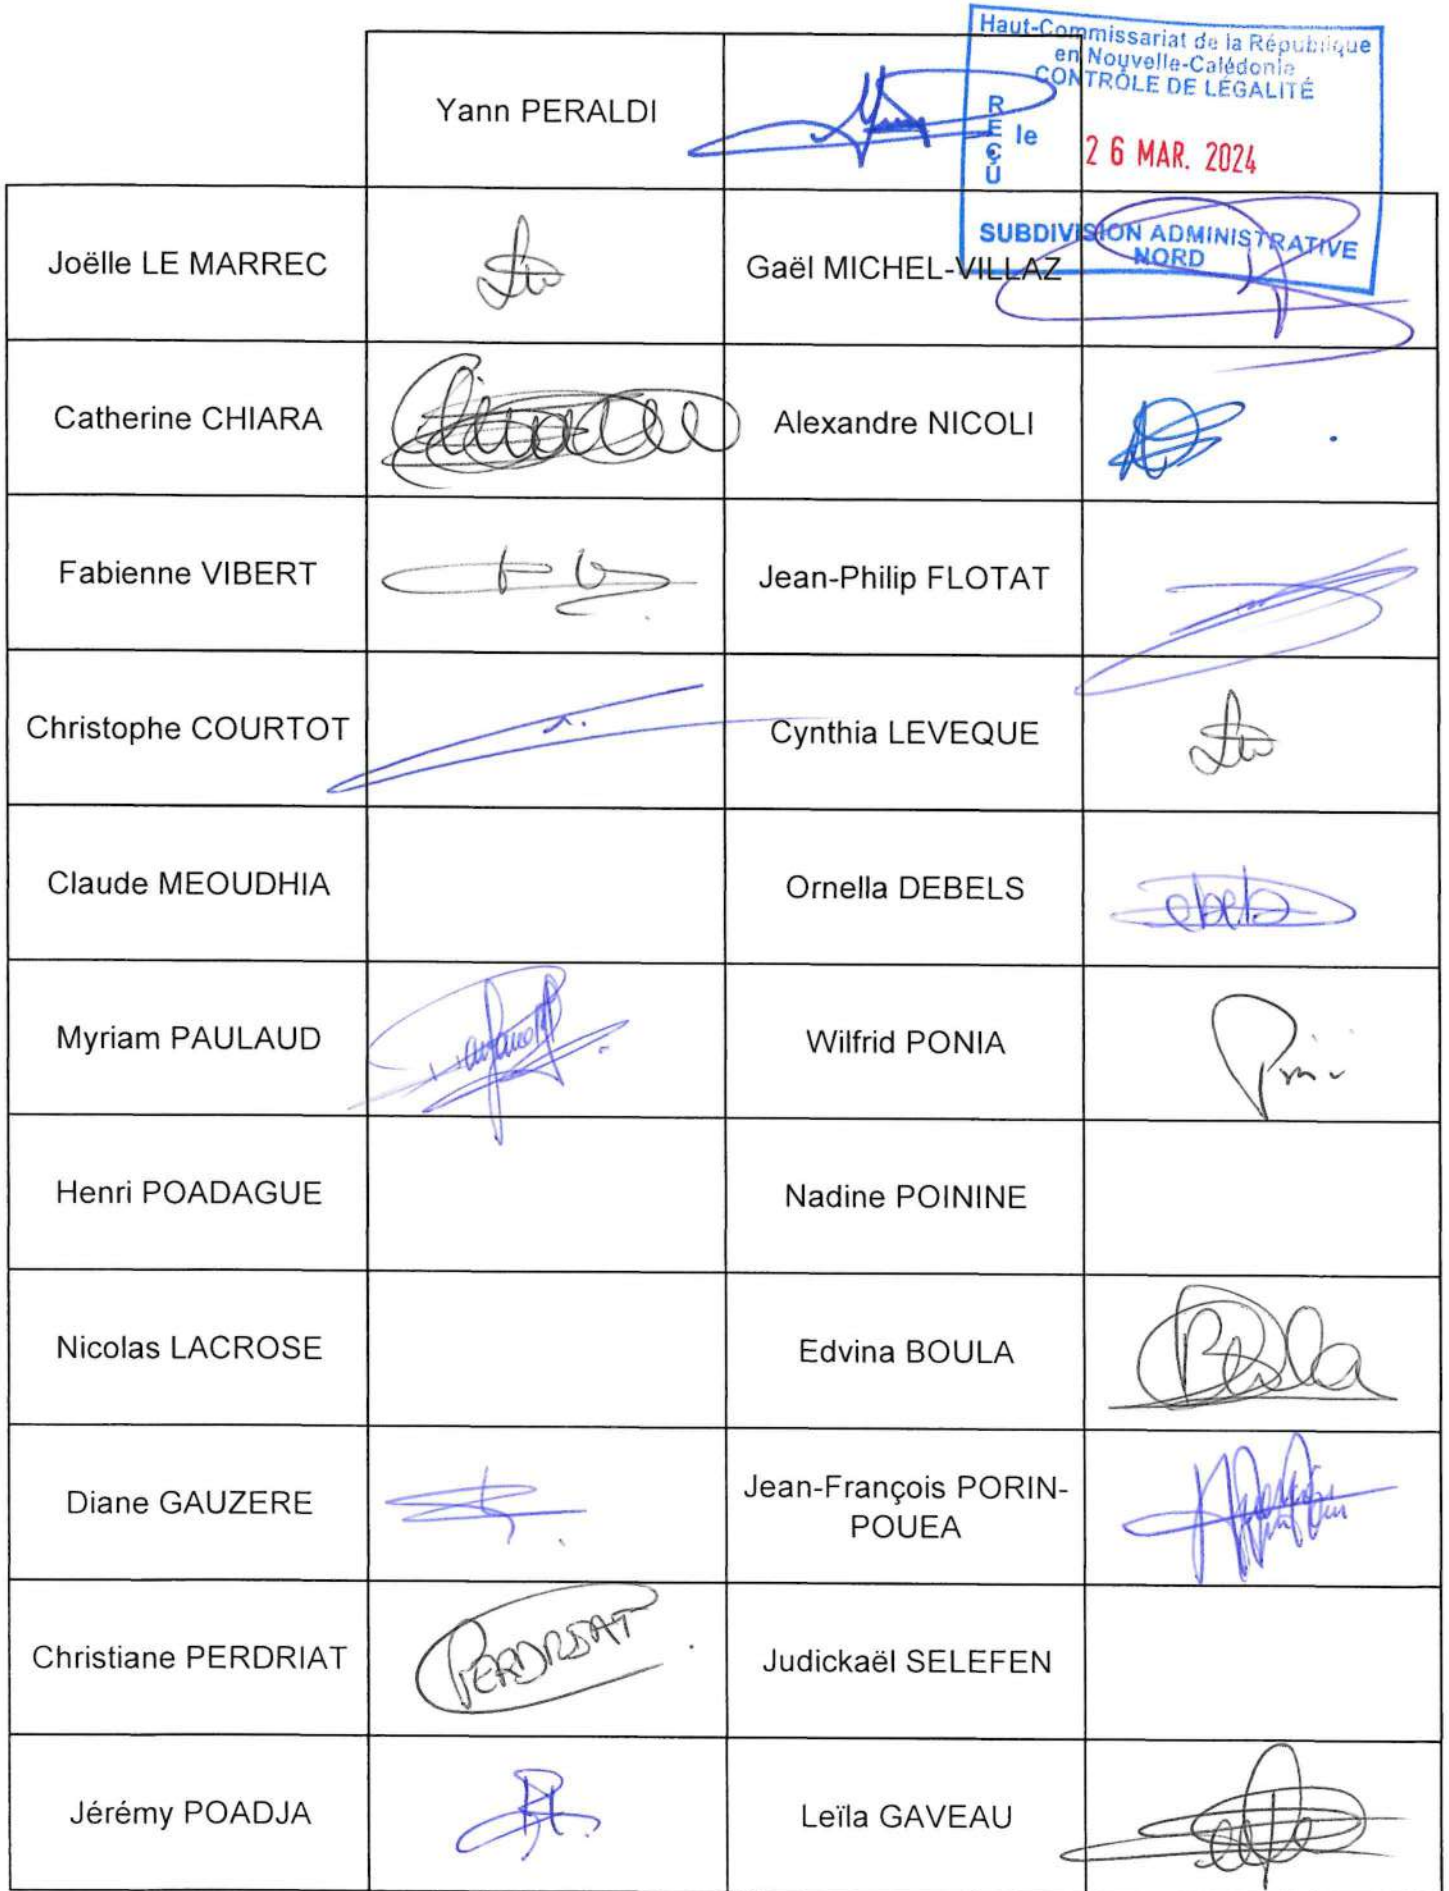 Haut-Commissariat de la République
en Nouvelle-Calédonie
CONTRÔLE DE LÉGALITÉ
REÇU le
26 MAR. 2024
SUBDIVISION ADMINISTRATIVE
NORD
Yann PERALDI
Joëlle LE MARREC
Gaël MICHEL-VILLAZ
Catherine CHIARA
Alexandre NICOLI
Fabienne VIBERT
Jean-Philip FLOTAT
Christophe COURTOT
Cynthia LEVEQUE
Claude MEOUDHIA
Ornella DEBELS
Myriam PAULAUD
Wilfrid PONIA
Henri POADAGUE
Nadine POININE
Nicolas LACROSE
Edvina BOULA
Diane GAUZERE
Jean-François PORIN-
POUEA
Christiane PERDRIAT
PERDRIAT
Judickaël SELEFEN
Jérémy POADJA
Leïla GAVEAU